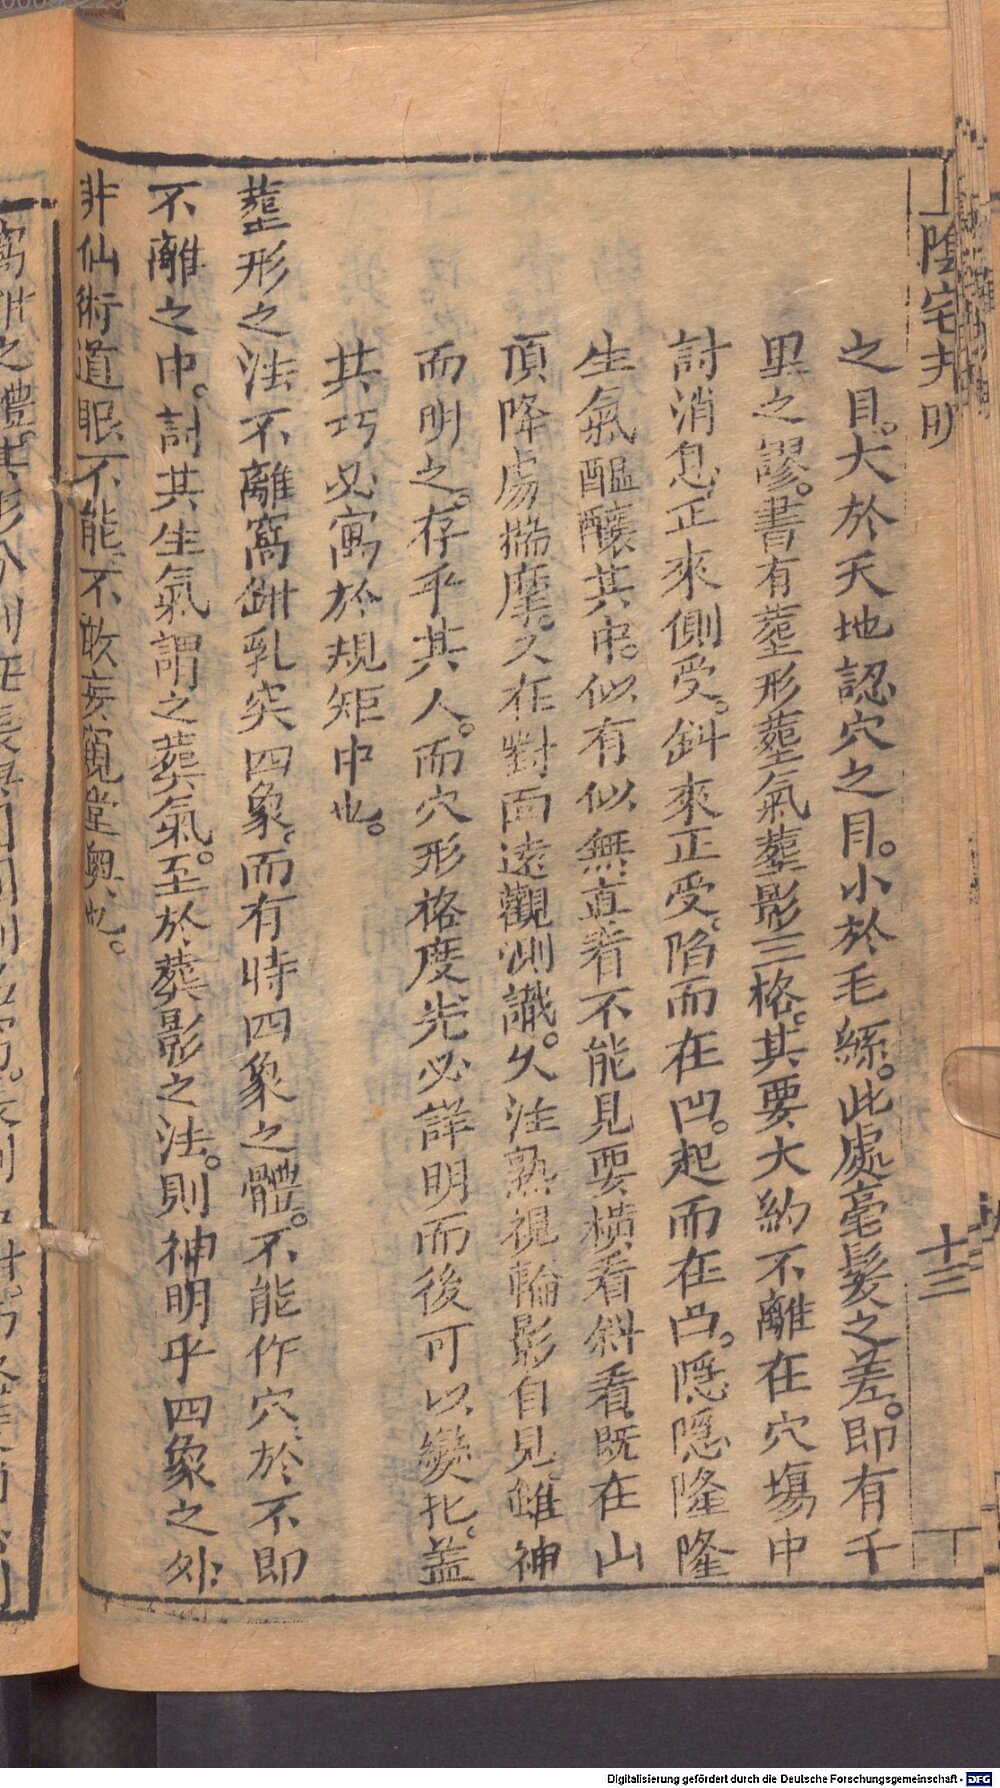 陰宅 明
十三
之目。大於天地認穴之目。小於毛絲。此處毫髮之差。即有千
里之謬。書有塟形塟氣塟影三格。其要大約不離在穴塲中
討消息正來側受。斜來正受。陷而在凹。起而在凸。隱隱隆隆
生氣醞釀其中。似有似無直看不能見要橫看斜看既在山
頂降處揣摩。又在對面遠觀測識。久注熟視輪影自見雖神
而明之。存乎其人。而穴形格度先必詳明而後可以變化。蓋
其巧必寓於規矩中也。
塟形之法不離窩鉗乳突四象。而有時四象之體。不能作穴、於不即
不離之中。討其生氣謂之葬氣。至於葬影之法。則神明乎四象之外
非仙術道眼不能、不敢妄窺堂奧也。
Digitalisierung gefördert durch die Deutsche Forschungsgemeinschaft - DFG